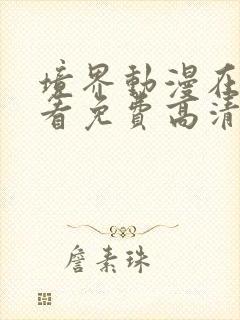 境界動漫在
看免費高清
詹素珠